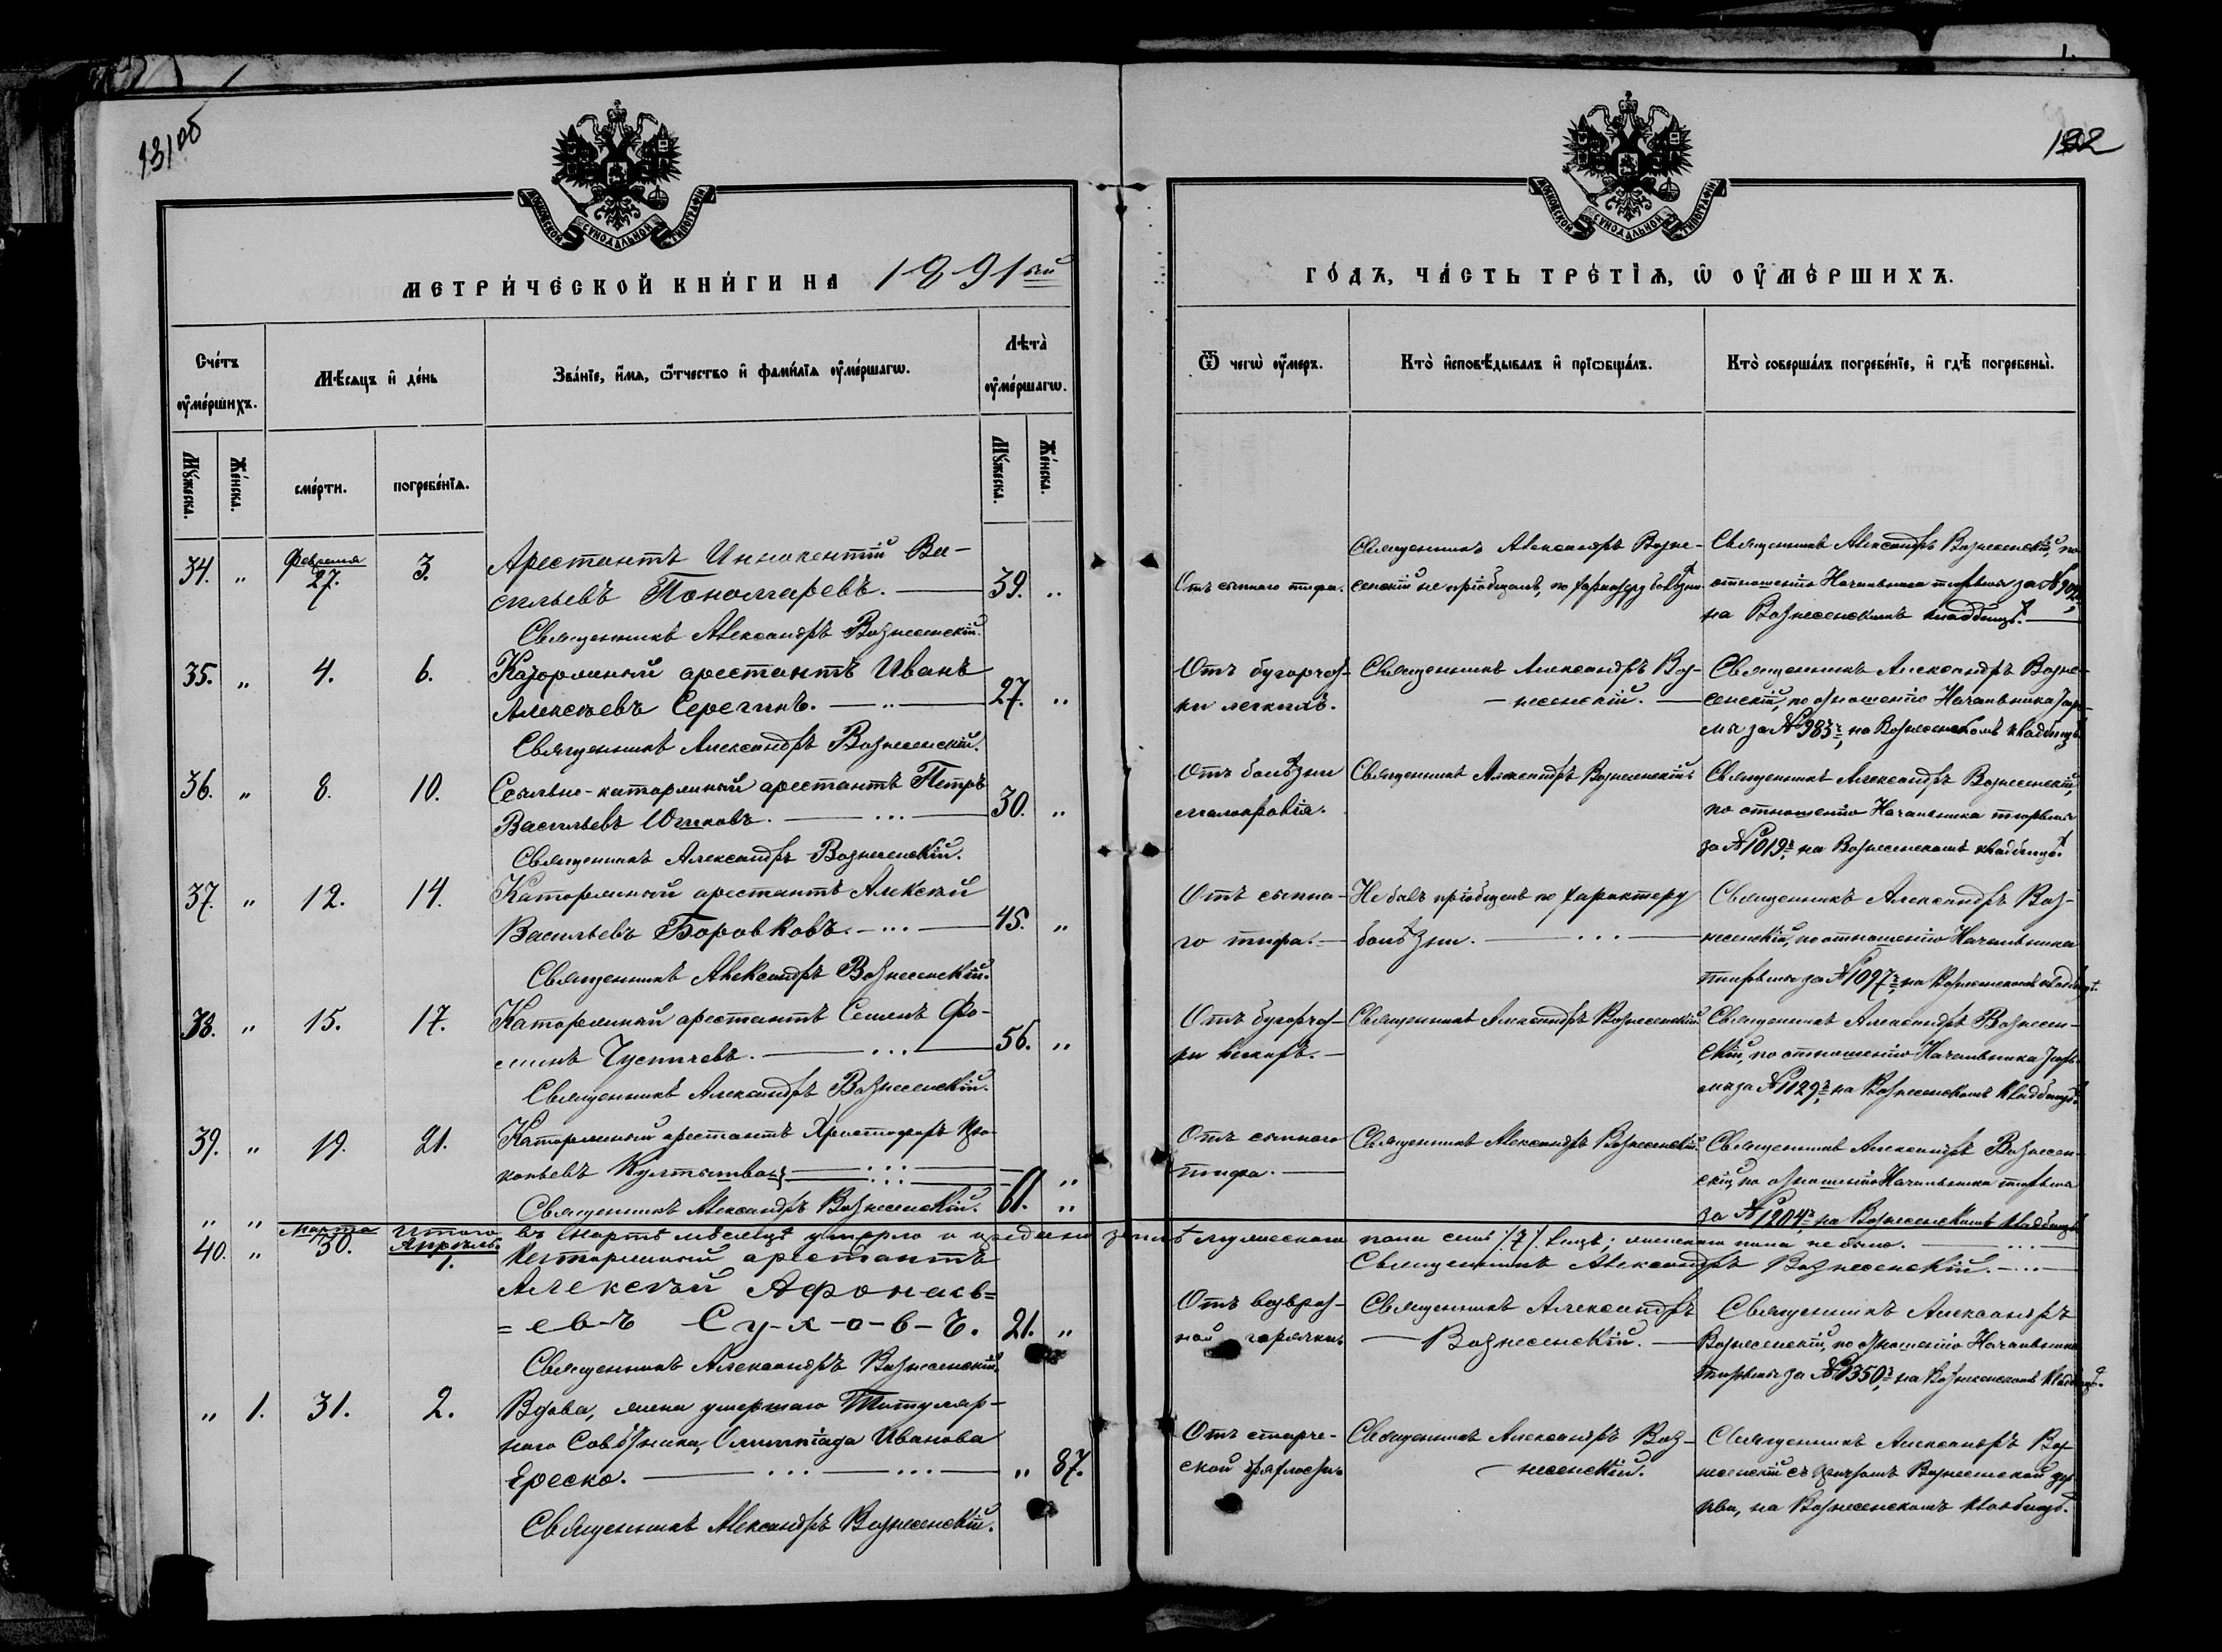 131об
132
МОСКОВСКОЙ СѴНОДАЛЬНОЙ ТИПОГРАФІИ
МОСКОВСКОЙ СѴНОДАЛЬНОЙ ТИПОГРАФІИ
МЕТРИ́ЧЕСКОЙ КНИ́ГИ НА 1891ый
ГО́ДЪ, ЧА́СТЬ ТРЕ́ТІѦ, Ѡ҆ ОУ҆МЕ́РШИХЪ.
Сче́тъ оу҆ме́ршихъ.
Мѣ́сѧцъ и҆ де́нь
Зва́нїе, и҆́мѧ, ѻ҆́тчество и҆ фамилїѧ оу҆ме́ршагѡ.
Лѣта̀ оу҆ме́ршагѡ.
Ѿ чегѡ̀ оу҆́меръ.
Кто̀ и҆сповѣ́дывалъ и҆ прїѡбща́лъ.
Кто̀ соверша́лъ погребе́нїе, и҆ гдѣ̀ погребены̀.
Мꙋ́жеска.
Же́нска.
сме́рти.
погребе́нїѧ.
Мꙋ́жеска.
Же́нска.
34. „ Февраля 27. 3. Арестантъ Иннокентій Ва-
сильевъ Пономаревъ. — 39. „
Священникъ Александръ Вознесенскій.
Отъ сыпного тифа.
Священникъ Александръ Возне-
сенскій не пріобщалъ, по характеру болѣзни
Священникъ Александръ Вознесенскій, по
отношенію Начальника тюрьмы за № 902,
на Вознесенскомъ кладбищѣ. —
35. „ 4. 6. Каторжный арестантъ Иванъ
Алексѣевъ Серегинъ. — 27. „
Священникъ Александръ Вознесенскій.
Отъ бугорчат-
ки легкихъ.
Священникъ Александръ Воз-
— несенскій. —
Священникъ Александръ Возне-
сенскій, по отношенію Начальника тюрь-
мы за № 983, на Вознесенскомъ кладбищѣ
36. „ 8. 10. Ссыльно-каторжный арестантъ Петръ
Васильевъ Юшковъ. — 30. „
Священникъ Александръ Вознесенскій.
Отъ болѣзни
малокровія.
Священникъ Александръ Вознесенскій
Священникъ Александръ Вознесенскій,
по отношенію Начальника тюрьмы
за № 1019, на Вознесенскомъ кладбищѣ.
37. „ 12. 14. Каторжный арестантъ Алексѣй
Васильевъ Боровковъ. — 45. „
Священникъ Александръ Вознесенскій.
Отъ сыпна-
го тифа. —
Не былъ пріобщенъ по характеру
болѣзни. —
Священникъ Александръ Воз-
несенскій, по отношенію Начальника
тюрьмы за № 1097, на Вознесенскомъ кладбищѣ.
38. „ 15. 17. Каторжный арестантъ Семенъ Фо-
минъ — 56. „
Священникъ Александръ Вознесенскій.
Отъ бугорчат-
ки легкихъ. —
Священникъ Александръ Вознесенскій.
Священникъ Александръ Вознесен-
скій, по отношенію Начальника тюрь-
мы за № 1129, на Вознесенскомъ кладбищѣ.
39. „ 19. 21. Каторжный арестантъ Христофоръ Про-
копьевъ — 61. „
Священникъ Александръ Вознесенскій.
Отъ сыпного
тифа. —
Священникъ Александръ Вознесенскій.
Священникъ Александръ Вознесен-
скій, по отношенію Начальника тюрьмы
за № 1204, на Вознесенскомъ кладбищѣ
„ „ Итого въ Мартѣ мѣсяцѣ умерло и предано землѣ мужескаго пола семь /7/ лицъ; женскаго пола не было. —
Священникъ Александръ Вознесенскій. —
40. „ Марта 30. Апрѣль 1. Каторжный арестантъ
Алексѣй Афонась=
=ев-ъ С-у-х-о-в-ъ. 21. „
Священникъ Александръ Вознесенскій.
Отъ возврат-
ной горячки.
Священникъ Александръ
— Вознесенскій. —
Священникъ Александръ
Вознесенскій, по отношенію Начальника
тюрьмы за № 1350, на Вознесенскомъ кладбищѣ.
„ 1. 31. 2. Вдова, жена умершаго Титуляр-
наго Совѣтника, Олимпіада Иванова
Ереско. — „ 87.
Священникъ Александръ Вознесенскій.
Отъ старче-
ской дряхлости.
Священникъ Александръ Воз-
— несенскій.
Священникъ Александръ Воз-
несенскій съ причтомъ Вознесенской цер-
кви, на Вознесенскомъ кладбищѣ.